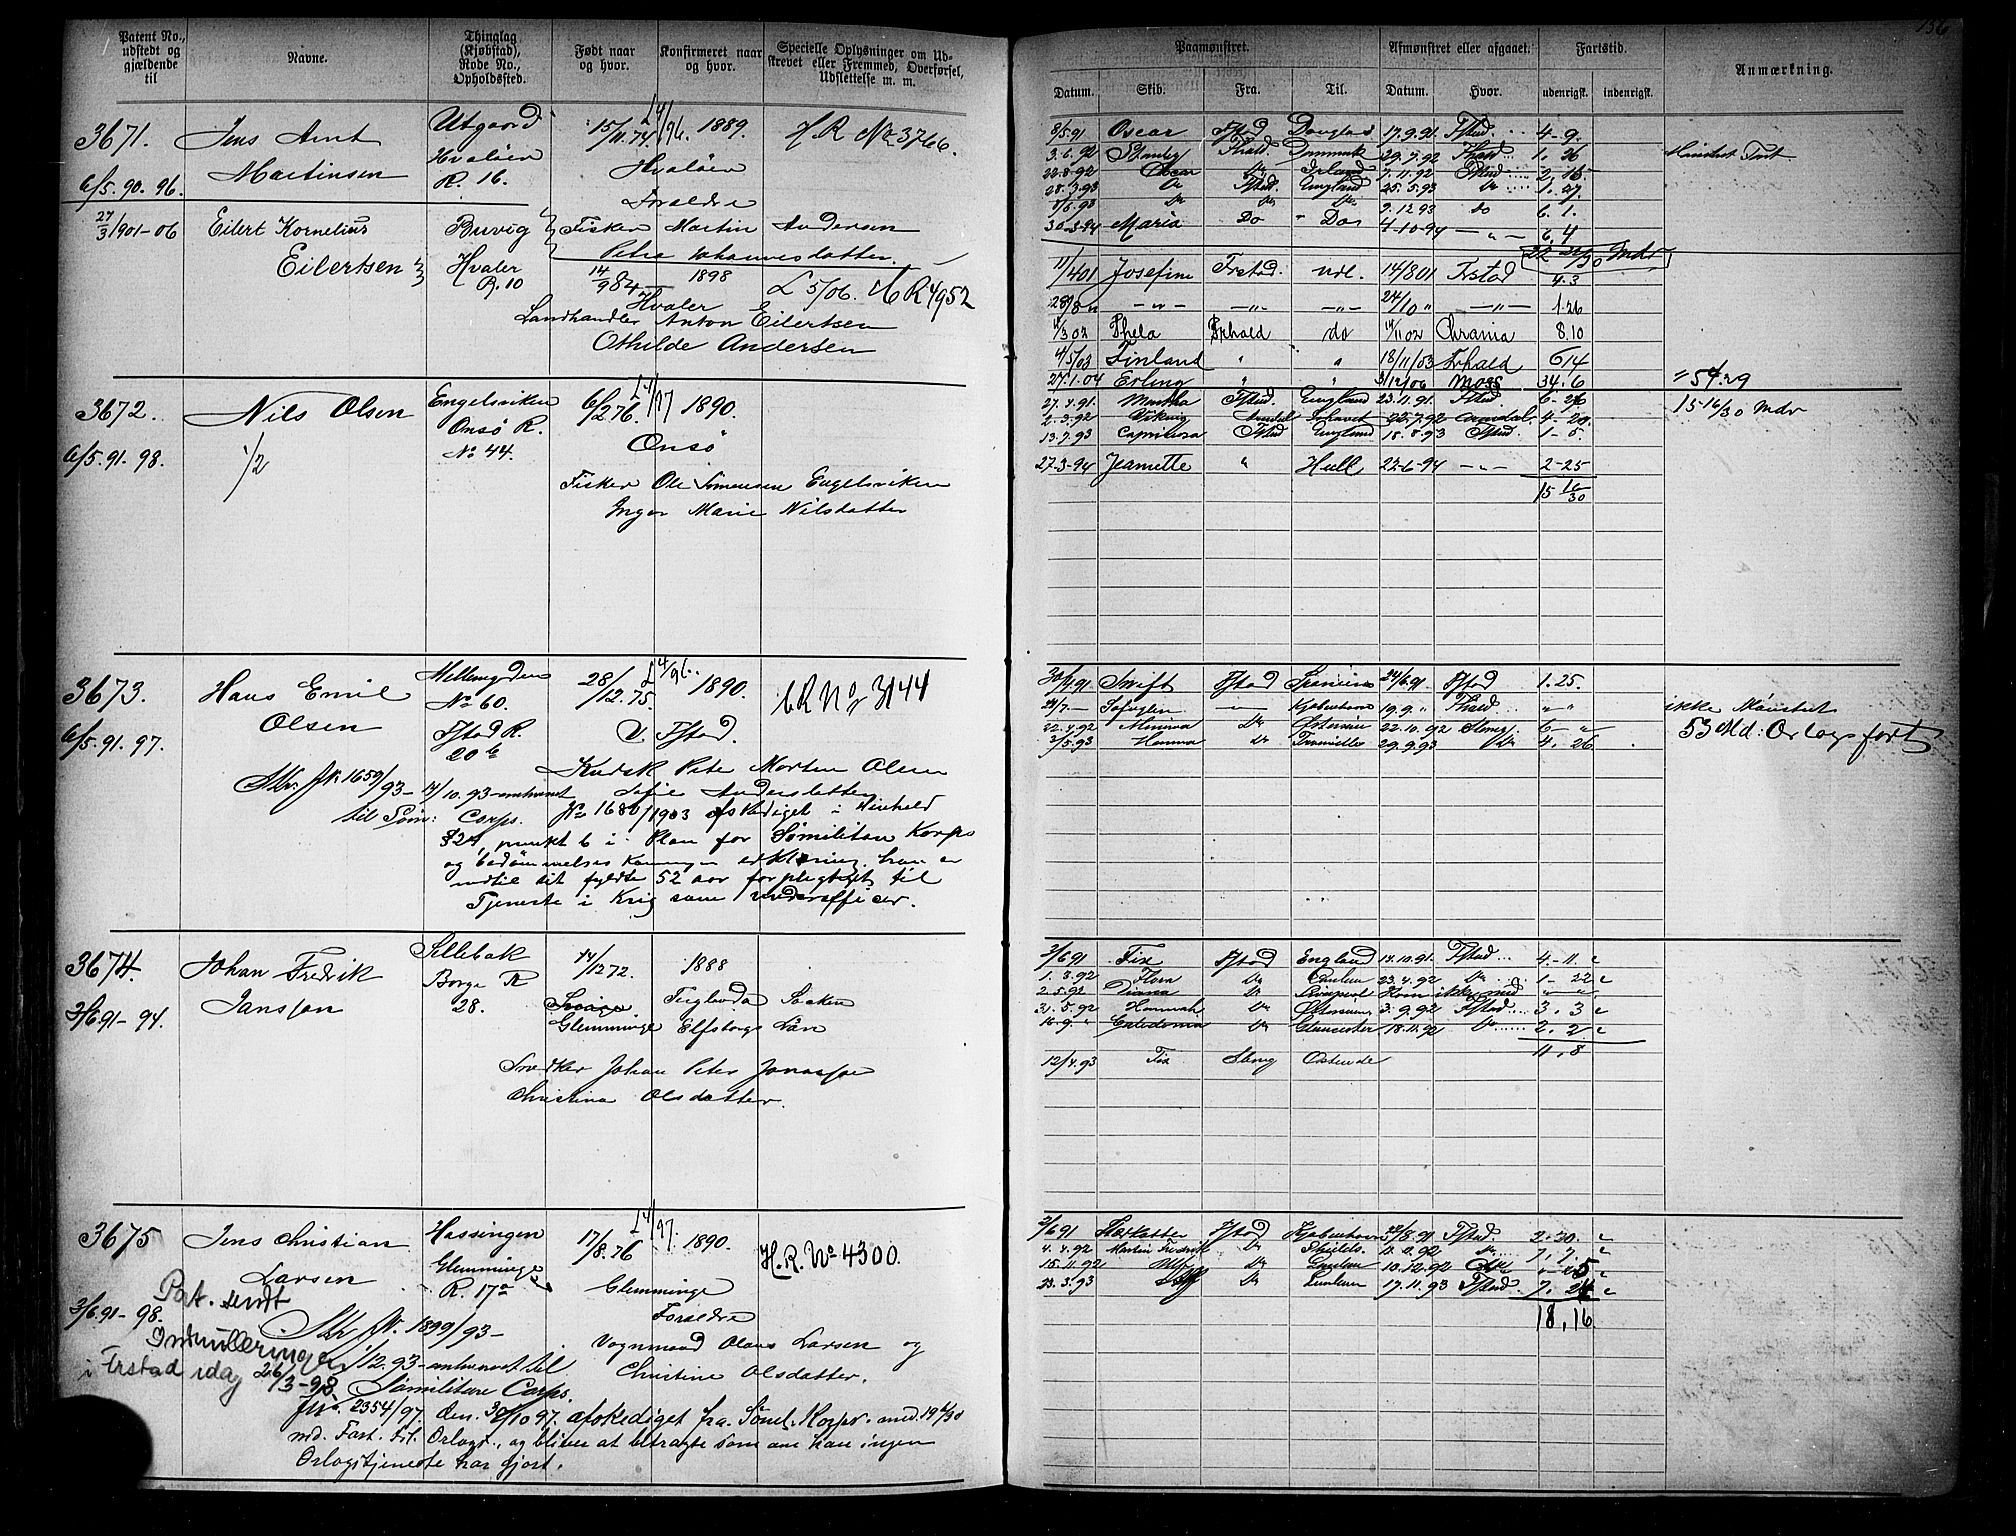 156
Patent No., udstedt og gjældende til
Navne.
Thinglag (Kjøbstad), Rode No., Opholdssted.
Født naar og hvor.
Konfirmeret naar og hvor.
Specielle Oplysninger om Udstrevet eller Fremmed, Overførsel, Udslettelse m. m.
Paamønstret.
Afmønstret eller afgaaet.
Fartstid.
Anmærkning.
Datum.
Skib.
Fra.
Til.
Datum.
Hvor.
udenrigsk.
indenrigsk.
3671.
Jens Arnt
Martinsen
6/5. 90. 96.
Utgaard
Hvaløer
R. 16.
15/11. 74.
L 4/96.
1889.
Hvaløer
Forældre
H R No 3766.
Fisker Martin Andersen
Petra Johannesdatter.
27/3 1901-06
Eilert Kornelius
Eilertsen
Buvig
Hvaler
R. 10
14/9 84
1898
Hvaler
L 5/06. H R 4952
Landhandler Anton Eilertsen
Othilde Andersen
8/5 91 Oscar Fstad Douglas 17.9.91. Fstad. 4-9.
3.6.92 Fhald. Danmark 29.7.92 Fhald 1. 26
22.8.92 Oscar Do Irland 7.11.92 Fstad
28.3.93 Do Fstad. England 25.5.93 Do 1.27.
Do Do Do 9.12.93 do 6. 1.
30.3.94 Maria Do - Do 4-10-94 - " - 6, 4
11/4 01 Josefine Frstad. udl. 14/8 01 Frstad 4.3
28/8 " - " - - " - - " - 24/10 " - " - 1.26
/3 02 Thela Frhald do 14/11 02 Chrania 8.10
4/5 03 Finland " " 18/11 03 Frhald 6 14
27.1.04 Erling " " 3/12/06 Moss 34.6
" 54.29
3672.
Nils Olsen
1/2
6/5. 91. 98.
Engelsviken
Onsø R.
No 44.
6/2 76.
L 4/97
1890.
Onsø
Fisker Ole Simensen Engelsviken
Inger Marie Nilsdatter
27.4.91. Martha Fstad. England 23.11.91. Fstad. 6-26
2.3.92 Viking Arendal 22.7.92 Arendal. 4-20.
13.7.93 Fstad England 18.8.93 Fstad. 1-5.
27-3-94 Jeanette " Hull 22-6-94 - " - 2-25
15 16/30
15 16/30 Mdr
3673.
Hans Emil
Olsen
6/5. 91. 97.
No 60.
Fstad R.
20 b
28/12. 75.
L 4/96.
1890.
V. Fstad.
H R No 3144
Kudsk Peter Morten Olsen
Sofie Andersdatter
Skr. J No. 1659/93 - 14/10. 93 - antaget
til Søm: Corps. No 1680/1903 afskediget i Henhold
§24, punkt 6 i Plan for Sømilitære Korps
og bedømmelses kommissions erklæring. han er
indtil sit fyldte 52 aar forpligtet til
Tjeneste i Krig som underofficer.
30/4 91 Swift Fstad 24/6.91 Fstad 1.25.
- Kjøbenhavn 19.9." Fhald " "
22.4.92 Minerva Do 22.10.92 6- "
3/5.93 Hanna Do 29.9.93 Do 4. 26
ikke Mønstret
53 Md: Orlogsfart
3674.
Johan Fredrik
Jansson
3/6 91-94.
Sillebak
Borge R
28.
14/12 72.
1888
Glemminge
Elfsborgs Län
Snedker Johan Peter Jonasson
Christina Olsdatter.
3/6 91 Fix Fstad England 14.10.91. Fstad 4.-11. "
1.3.92 Do 23.4.92 Do 1- 22 "
2.5.92 Diana Do Liverpool Kom ikke med " - "
21.5.92 Hannah Do 3.9.92 Fstad 3. 3 "
16.9. " Caledonia Do Gloucester 18.11.92 Do 2. 2 "
11, 8
12/4.93 Fix Sbrg Ostende
3675
Jens Christian
Larsen
3/6. 91-98.
Hassingen
Glemminge
R. 17a
17/8. 76
L 4/97.
1890.
Glemminge
Forældre
H. R. No 4300.
Pat. sendt
Indrulleringen
i Frstad idag 26/3-98.
Skr. J No. 1899/93 -
1/12. 93 - antaget til
Sømilitære Corps.
Vognmand Olaus Larsen og
Christine Olsdatter.
J No. 2354/97. den 30/10 97. afskediget fra Sømil. Korps. med 19 6/30
md. Fart. til Orlogs., og bliver at betragte som om han ingen
Orlogstjeneste har gjort.
2/6 91 Fstad Kjøbenhavn /8.91 Fstad 2-20. "
4.4.92 Martin Fredrik Do Shields. Do 7, 7, "
15.11.92 Do London 10.12.92 "
23.3.93 Do London 17.11.93 Fstad
18,16